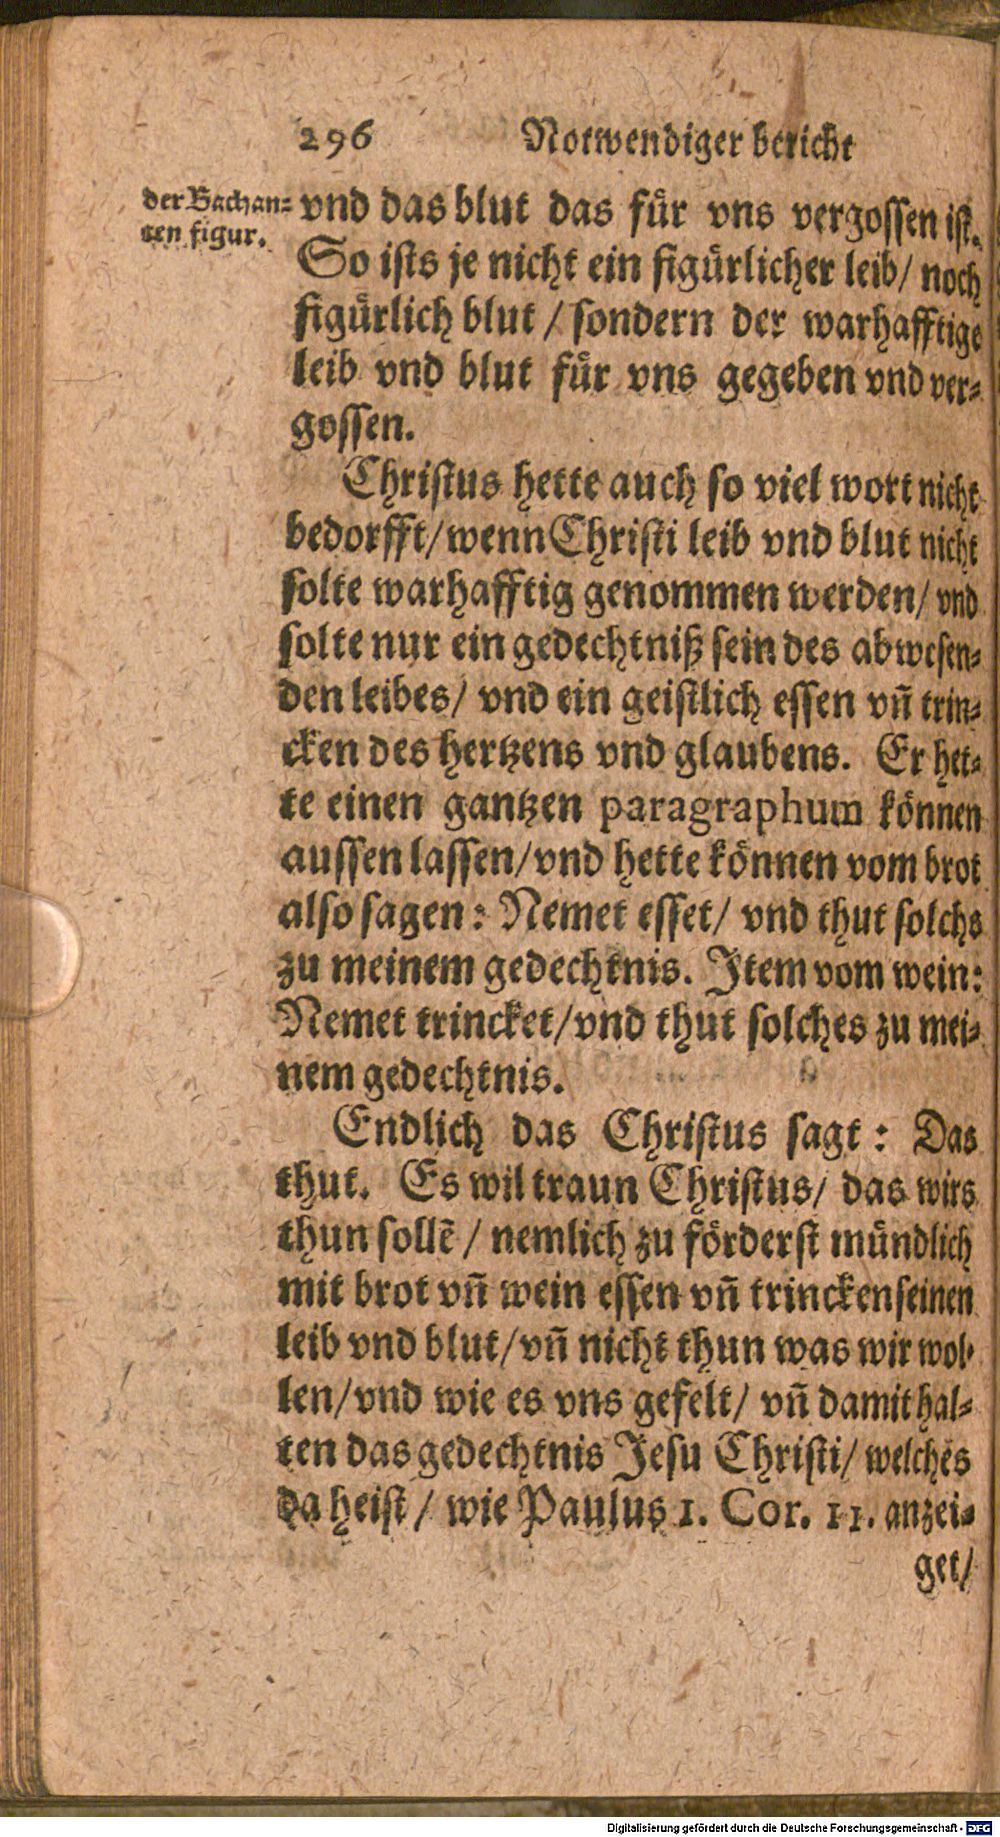 296 Notwendiger bericht
der Bachan-
ten figur.
vnd das blut das für vns vergossen ist.
So ists je nicht ein figürlicher leib/ noch
figürlich blut / sondern der warhafftige
leib vnd blut für vns gegeben vnd ver-
gossen.
Christus hette auch so viel wort nicht
bedorfft/ wenn Christi leib vnd blut nicht
solte warhafftig genommen werden/ vnd
solte nur ein gedechtniß sein des abwesen-
den leibes/ vnd ein geistlich essen vñ trin-
cken des hertzens vnd glaubens. Er het-
te einen gantzen paragraphum können
aussen lassen/ vnd hette können vom brot
also sagen: Nemet esset/ vnd thut solchs
zu meinem gedechtnis. Item vom wein:
Nemet trincket/ vnd thut solches zu mei-
nem gedechtnis.
Endlich das Christus sagt: Das
thut. Es wil traun Christus/ das wirs
thun sollẽ / nemlich zu förderst mündlich
mit brot vñ wein essen vñ trincken seinen
leib vnd blut/ vñ nicht thun was wir wol-
len/ vnd wie es vns gefelt/ vñ damit hal-
ten das gedechtnis Jesu Christi/ welches
da heist / wie Paulus 1. Cor. 11. anzei-
get/
Digitalisierung gefördert durch die Deutsche Forschungsgemeinschaft - DFG